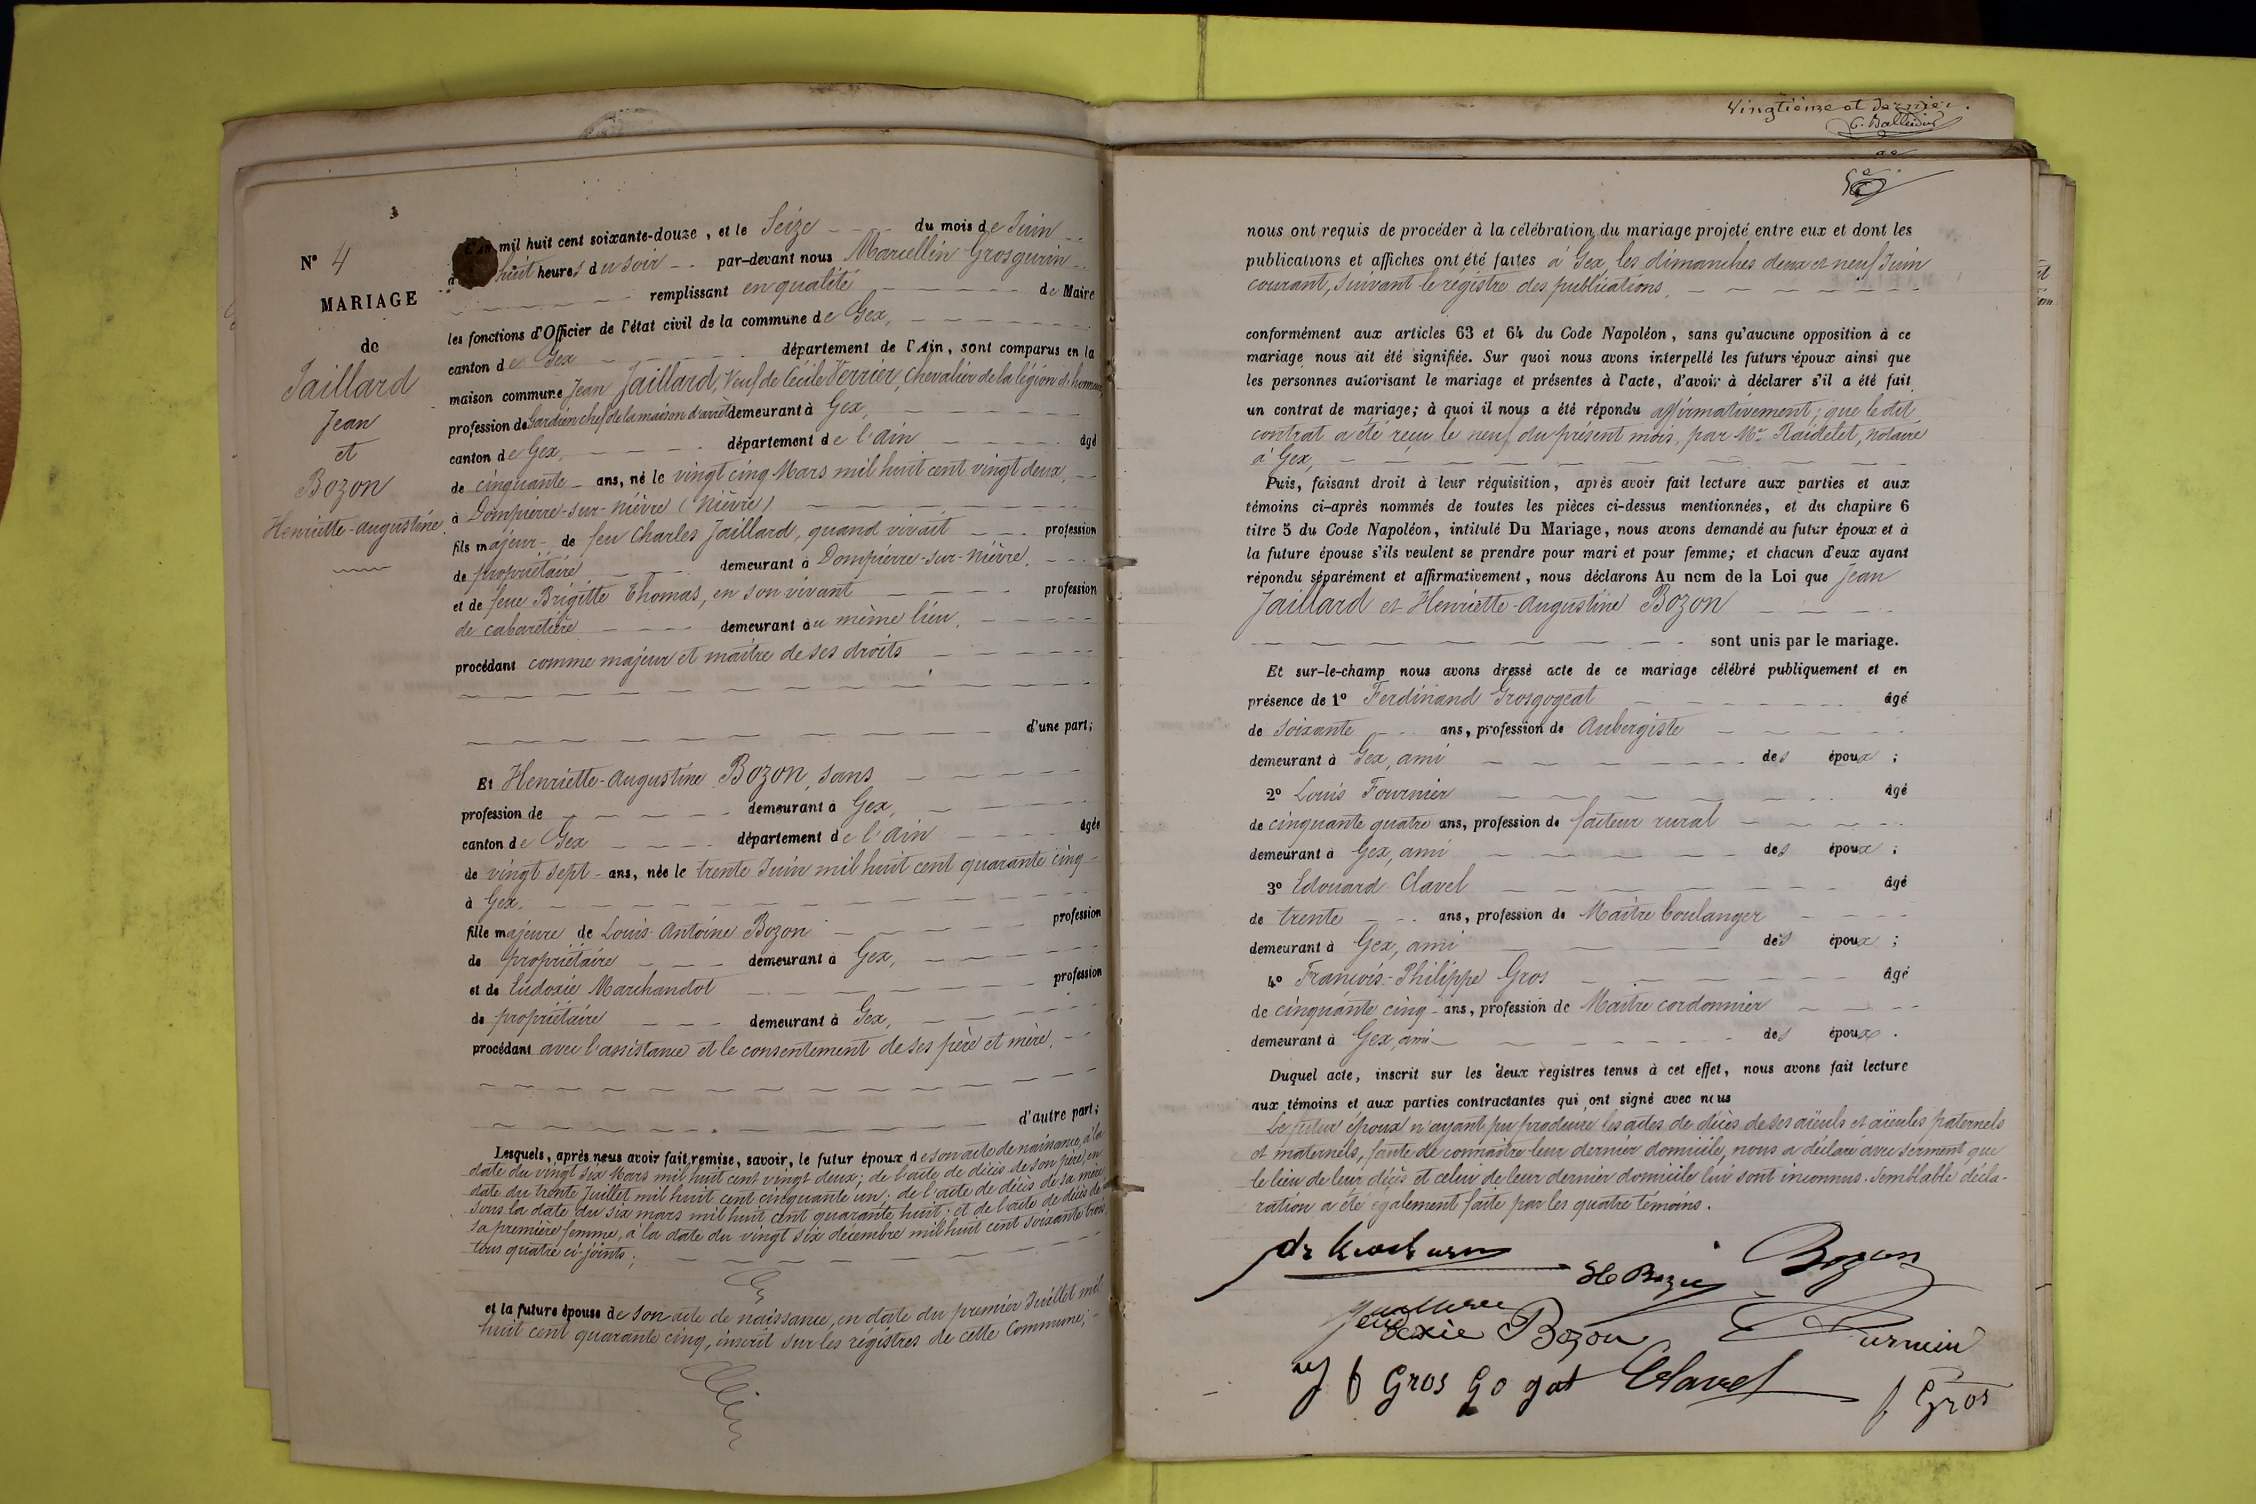 N° 4
MARIAGE
de
Jaillard
Jean
et
Bozon
Henriette-Augustine
L'an mil huit cent soixante-douze, et le Seize du mois de Juin
à huit heures du soir par-devant nous Marcellin Grosgurin
remplissant en qualité de Maire
les fonctions d'Officier de l'état civil de la commune de Gex,
canton de Gex département de l'Ain, sont comparus en la
maison commune Jean Jaillard, Veuf de Cécile Verrier, Chevalier de la légion d'honneur,
profession de Gardien chef de la maison d'arrêt demeurant à Gex,
canton de Gex, département de l'Ain âgé
de cinquante ans, né le vingt cinq Mars mil huit cent vingt deux,
à Dompierre-sur-Nièvre (Nièvre)
fils majeur de feu Charles Jaillard, quand vivait profession
de propriétaire demeurant à Dompierre-sur-Nièvre,
et de feue Brigitte Thomas, en son vivant profession
de cabaretière demeurant au même lieu,
procédant comme majeur et maître de ses droits
d'une part;
Et Henriette-Augustine Bozon, sans
profession de demeurant à Gex,
canton de Gex département de l'Ain âgée
de vingt sept ans, née le trente Juin mil huit cent quarante cinq
à Gex.
fille majeure de Louis-Antoine Bozon profession
de propriétaire demeurant à Gex,
et de Eudoxie Marchandot profession
de propriétaire demeurant à Gex,
procédant avec l'assistance et le consentement de ses père et mère.
d'autre part;
Lesquels, après nous avoir fait remise, savoir, le futur époux de son acte de naissance, à la
date du vingt six Mars mil huit cent vingt deux; de l'acte de décès de son père, en
date du trente Juillet mil huit cent cinquante un; de l'acte de décès de sa mère
sous la date du six mars mil huit cent quarante huit; et de l'acte de décès de
sa première femme, à la date du vingt six décembre mil huit cent soixante trois,
tous quatre ci-joints;
et la future épouse de son acte de naissance, en date du premier Juillet mil
huit cent quarante cinq, inscrit sur les régistres de cette Commune;
Vingtième et dernier.
nous ont requis de procéder à la célébration du mariage projeté entre eux et dont les
publications et affiches ont été faites à Gex, les dimanches deux et neuf Juin
courant, suivant le régistre des publications.
conformément aux articles 63 et 64 du Code Napoléon, sans qu'aucune opposition à ce
mariage nous ait été signifiée. Sur quoi nous avons interpellé les futurs époux ainsi que
les personnes autorisant le mariage et présentes à l'acte, d'avoir à déclarer s'il a été fait
un contrat de mariage; à quoi il nous a été répondu affirmativement; que le dit
contrat a été reçu le neuf du présent mois, par Me Raidelet, notaire
à Gex,
Puis, faisant droit à leur réquisition, après avoir fait lecture aux parties et aux
témoins ci-après nommés de toutes les pièces ci-dessus mentionnées, et du chapitre 6
titre 5 du Code Napoléon, intitulé Du Mariage, nous avons demandé au futur époux et à
la future épouse s'ils veulent se prendre pour mari et pour femme; et chacun d'eux ayant
répondu séparément et affirmativement, nous déclarons Au nom de la Loi que Jean
Jaillard et Henriette-Augustine Bozon
sont unis par le mariage.
Et sur-le-champ nous avons dressé acte de ce mariage célébré publiquement et en
présence de 1° Ferdinand Grosgogeat âgé
de soixante ans, profession de Aubergiste
demeurant à Gex, ami des époux;
2° Louis Fournier âgé
de cinquante quatre ans, profession de facteur rural
demeurant à Gex, ami des époux;
3° Edouard Clavel âgé
de trente ans, profession de Maître boulanger
demeurant à Gex, ami des époux;
4° François-Philippe Gros âgé
de cinquante cinq ans, profession de Maître cordonnier
demeurant à Gex, ami des époux.
Duquel acte, inscrit sur les deux registres tenus à cet effet, nous avons fait lecture
aux témoins et aux parties contractantes qui ont signé avec nous
Le futur époux n'ayant pu produire les actes de décès de ses aïeuls et aïeules paternels
et maternels, faute de connaître leur dernier domicile, nous a déclaré avec serment que
le lieu de leur décès et celui de leur dernier domicile lui sont inconnus. Semblable décla-
ration a été également faite par les quatre témoins.
Bozon
Bozon
Gros Go gat Clavel
f Gros